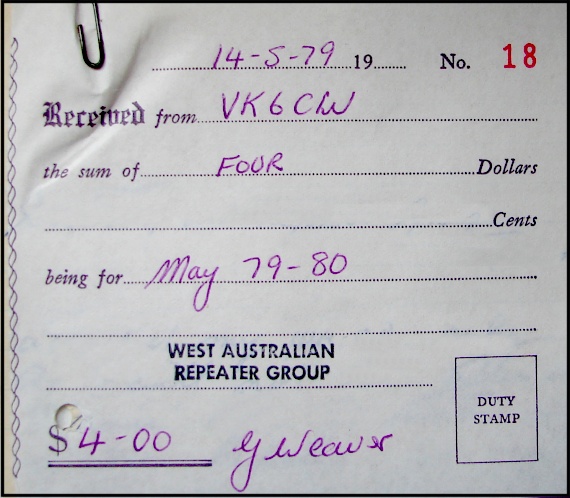 14-5-79 19 No. 18
Received from VK6CW
the sum of FOUR Dollars
Cents
being for May 79-80
WEST AUSTRALIAN
REPEATER GROUP
DUTY
STAMP
$4-00 G Weaver